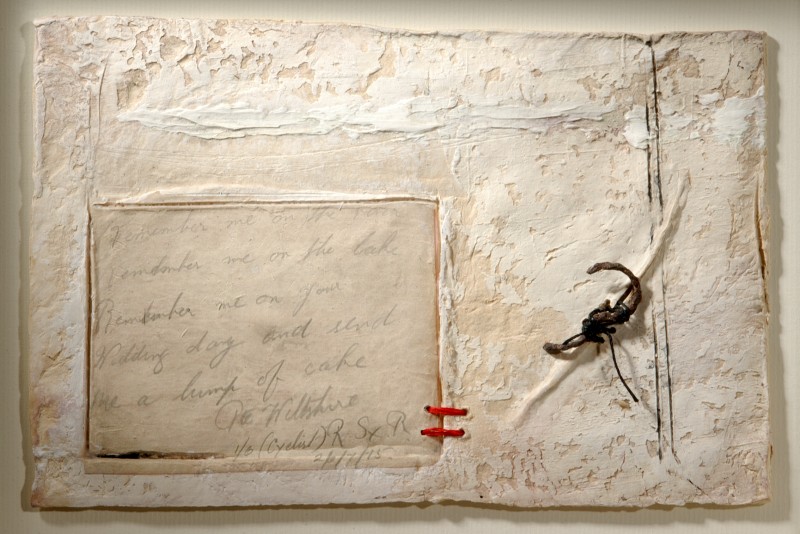 Remember me on the
Remember me on the lake
Remember me on your
Wedding day and send
me a lump of cake
Wiltshire
1/3 (Cyclist) R Sx R